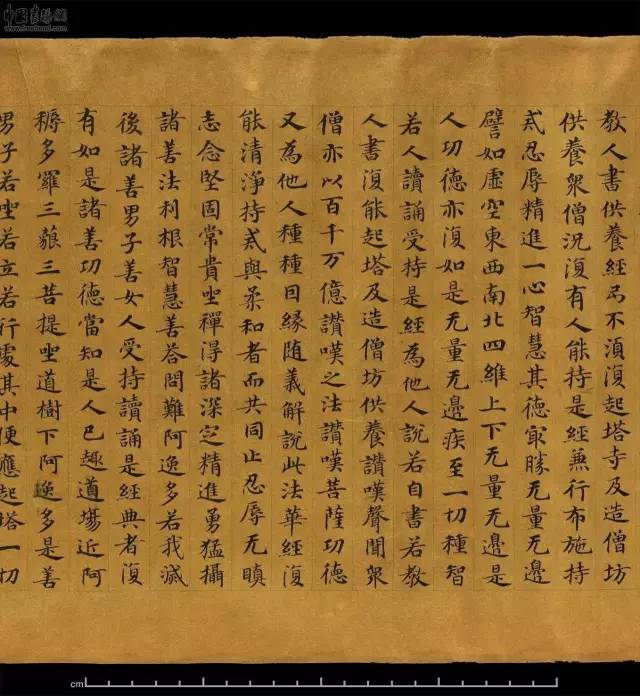 教人書供養經弓不湏復起塔寺及造僧坊
供養衆僧況復有人能持是經兼行布施持
戒忍辱精進一心智慧其德冣勝无量无邊
譬如虛空東西南北四維上下无量无邊是
人功德亦復如是无量无邊疾至一切種智
若人讀誦受持是經為他人說若自書若教
人書復能起塔及造僧坊供養讃嘆聲聞衆
僧亦以百千万億讃嘆之法讃嘆菩薩功德
又為他人種種因縁随義解說此法華經復
能清淨持戒與柔和者而共同止忍辱无瞋
志念堅固常貴坐禪淂諸深㝎精進勇猛攝
諸善法利根智慧善荅問難阿逸多若我滅
後諸善男子善女人受持讀誦是經典者復
有如是諸善功德當知是人已趣道場近阿
耨多羅三藐三菩提坐道樹下阿逸多是善
男子若坐若立若行處其中便應起塔一切
中國書法網
cm